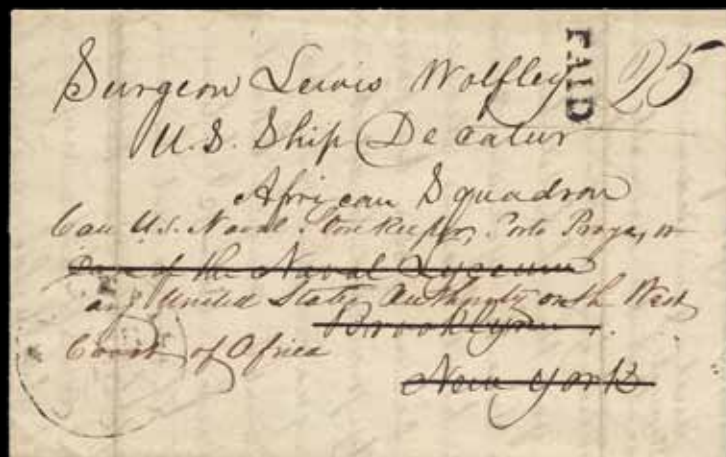 Surgeon Lewis Wolfley
PAID
25
U.S. Ship Decatur
African Squadron
Care U.S. Naval Storekeeper, Porto Praya, or
Care of the Naval Lyceum
any United States Authority on the West
Brooklyn
Coast of Africa
New York